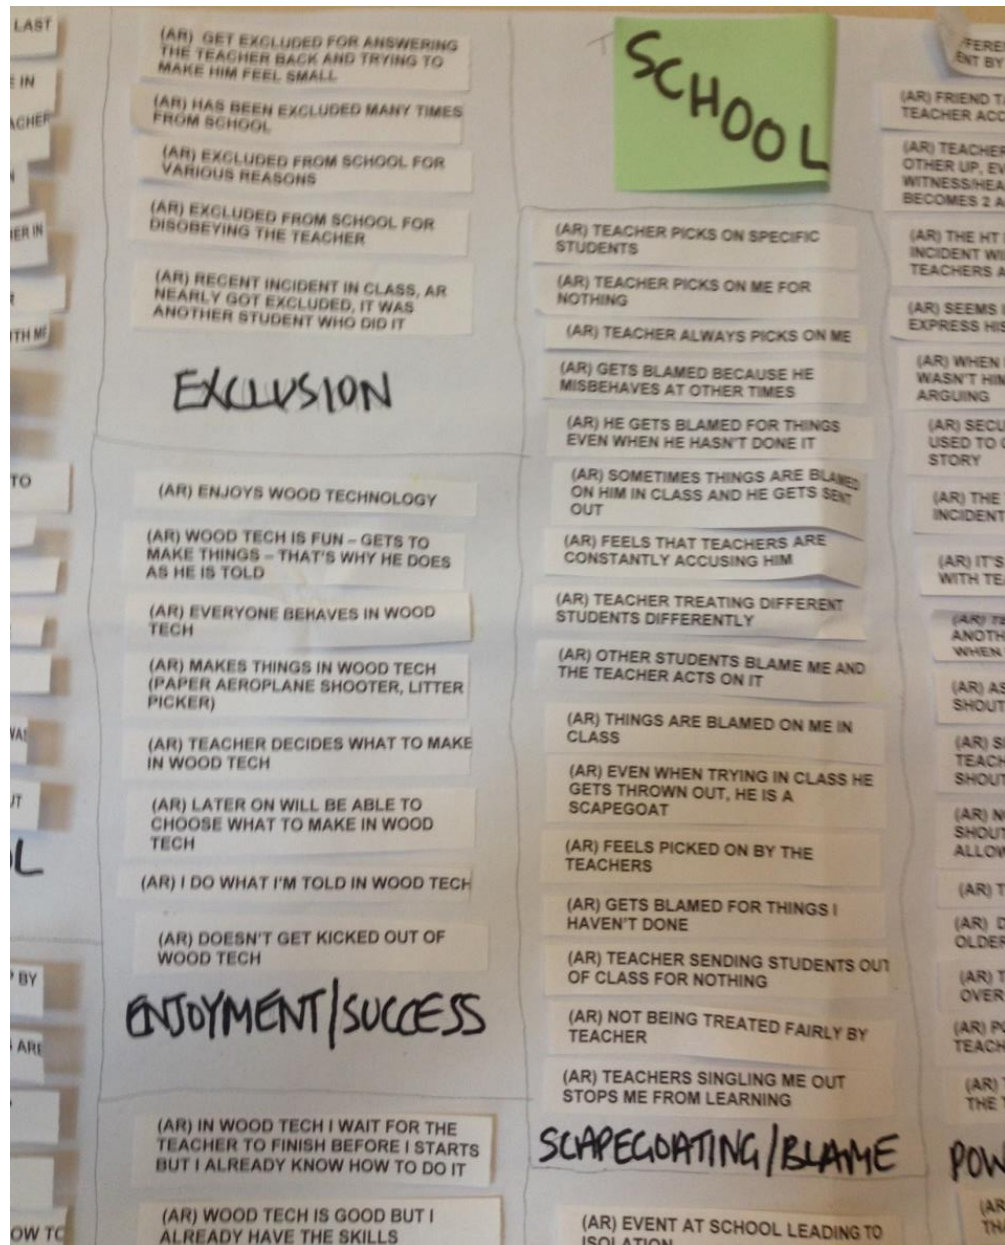 LAST
E IN
ACHER
ER IN
R
TH ME
TO
WAS
UT
OL
BY
ARE
OW TO
(AR) GET EXCLUDED FOR ANSWERING
THE TEACHER BACK AND TRYING TO
MAKE HIM FEEL SMALL
(AR) HAS BEEN EXCLUDED MANY TIMES
FROM SCHOOL
(AR) EXCLUDED FROM SCHOOL FOR
VARIOUS REASONS
(AR) EXCLUDED FROM SCHOOL FOR
DISOBEYING THE TEACHER
(AR) RECENT INCIDENT IN CLASS, AR
NEARLY GOT EXCLUDED, IT WAS
ANOTHER STUDENT WHO DID IT
EXCLUSION
(AR) ENJOYS WOOD TECHNOLOGY
(AR) WOOD TECH IS FUN – GETS TO
MAKE THINGS – THAT'S WHY HE DOES
AS HE IS TOLD
(AR) EVERYONE BEHAVES IN WOOD
TECH
(AR) MAKES THINGS IN WOOD TECH
(PAPER AEROPLANE SHOOTER, LITTER
PICKER)
(AR) TEACHER DECIDES WHAT TO MAKE
IN WOOD TECH
(AR) LATER ON WILL BE ABLE TO
CHOOSE WHAT TO MAKE IN WOOD
TECH
(AR) I DO WHAT I'M TOLD IN WOOD TECH
(AR) DOESN'T GET KICKED OUT OF
WOOD TECH
ENJOYMENT/SUCCESS
(AR) IN WOOD TECH I WAIT FOR THE
TEACHER TO FINISH BEFORE I STARTS
BUT I ALREADY KNOW HOW TO DO IT
(AR) WOOD TECH IS GOOD BUT I
ALREADY HAVE THE SKILLS
SCHOOL
(AR) TEACHER PICKS ON SPECIFIC
STUDENTS
(AR) TEACHER PICKS ON ME FOR
NOTHING
(AR) TEACHER ALWAYS PICKS ON ME
(AR) GETS BLAMED BECAUSE HE
MISBEHAVES AT OTHER TIMES
(AR) HE GETS BLAMED FOR THINGS
EVEN WHEN HE HASN'T DONE IT
(AR) SOMETIMES THINGS ARE BLAMED
ON HIM IN CLASS AND HE GETS SENT
OUT
(AR) FEELS THAT TEACHERS ARE
CONSTANTLY ACCUSING HIM
(AR) TEACHER TREATING DIFFERENT
STUDENTS DIFFERENTLY
(AR) OTHER STUDENTS BLAME ME AND
THE TEACHER ACTS ON IT
(AR) THINGS ARE BLAMED ON ME IN
CLASS
(AR) EVEN WHEN TRYING IN CLASS HE
GETS THROWN OUT, HE IS A
SCAPEGOAT
(AR) FEELS PICKED ON BY THE
TEACHERS
(AR) GETS BLAMED FOR THINGS I
HAVEN'T DONE
(AR) TEACHER SENDING STUDENTS OUT
OF CLASS FOR NOTHING
(AR) NOT BEING TREATED FAIRLY BY
TEACHER
(AR) TEACHERS SINGLING ME OUT
STOPS ME FROM LEARNING
SCAPEGOATING/BLAME
(AR) EVENT AT SCHOOL LEADING TO
ISOLATION
FFEREN
ENT BY
(AR) FRIEND TA
TEACHER ACC
(AR) TEACHER
OTHER UP, EV
WITNESS/HEA
BECOMES 2 A
(AR) THE HT
INCIDENT WI
TEACHERS A
(AR) SEEMS
EXPRESS HIS
(AR) WHEN
WASN'T HIM
ARGUING
(AR) SECU
USED TO
STORY
(AR) THE
INCIDENT
(AR) IT'S
WITH TEA
(AR) TE
ANOTH
WHEN
(AR) AS
SHOUT
(AR) S
TEACH
SHOUT
(AR) N
SHOUT
ALLOW
(AR) T
(AR) D
OLDER
(AR) T
OVER
(AR) PU
TEACH
(AR)
THE
POW
(AR
THA